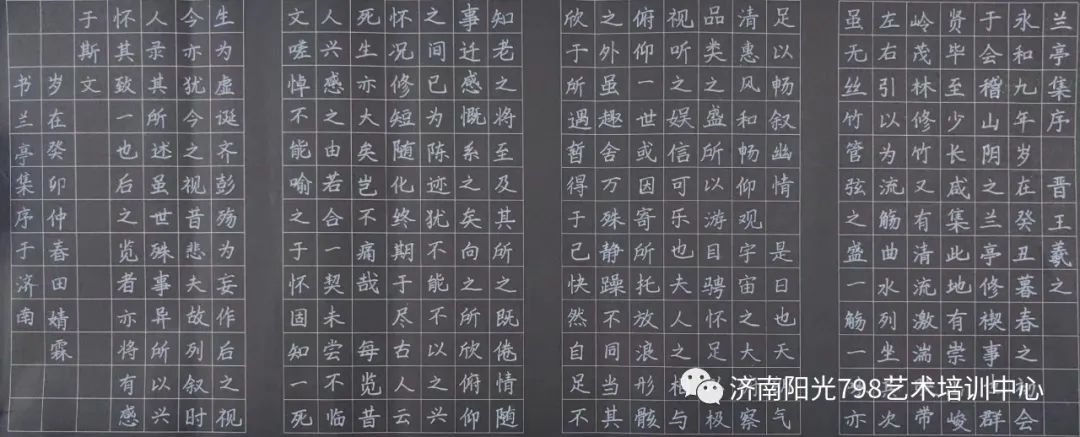 兰亭集序 晋王羲之
永和九年岁在癸丑暮春之会
于会稽山阴之兰亭修禊事群
贤毕至少长咸集此地有崇峻
岭茂林修竹又有清流激湍带
左右引以为流觞曲水列坐次
虽无丝竹管弦之盛一觞一亦
足以畅叙幽情 是日也天气
清惠风和畅仰观宇宙之大察
品类之盛所以游目骋怀足极
视听之娱信可乐也夫人之相与
俯仰一世或因寄所托放浪形骸
之外虽趣舍万殊静躁不同当其
欣于所遇暂得于己快然自足不
知老之将至及其所之既倦情随
事迁感慨系之矣向之所欣俯仰
之间已为陈迹犹不能不以之兴
怀况修短随化终期于尽古人云
死生亦大矣岂不痛哉 每览昔
人兴感之由若合一契未尝不临
文嗟悼不能喻之于怀固知一死
生为虚诞齐彭殇为妄作后之视
今亦犹今之视昔悲夫故列叙时
人录其所述虽世殊事异所以兴
怀其致一也后之览者亦将有感
于斯文
岁在癸卯仲春田婧霖
书兰亭集序于济南
济南阳光798艺术培训中心